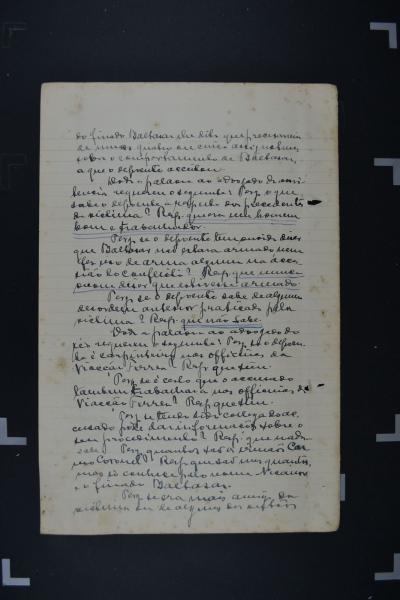 do finado Balthasar elle disse que precisava
de umas quatro ou cinco assignaturas
sobre o comportamento de Balthasar,
a que o depoente accedeu.
Dada a palavra ao advogado da assis-
tencia requereu o seguinte: Perg. o que
sabe o depoente a respeito dos precedentes
da victima? Resp. que era um homem
bom e trabalhador.
Perg. se o depoente tem ouvido dizer
que Balthasar não estava armado nem
fez uso de arma alguma na occa-
sião do conflicto? Resp. que nunca
ouviu dizer que estivesse armado.
Perg. se o depoente sabe de alguma
desordem anterior praticada pela
victima? Resp. que não sabe.
Dada a palavra ao advogado do
réo requereu o seguinte: Perg. se o depoen-
te é carpinteiro nas officinas da
Viacção Ferrea? Resp. que sim.
Perg. se é certo que o accusado
tambem trabalhava nas officinas da
Viacção Ferrea? Resp. que sim.
Perg. se tendo sido collega do ac-
cusado póde dar informações sobre o
seu procedimento? Resp. que nada
sabe. Perg. quantos são os irmãos Car-
Coronel? Resp. que são uns quantos,
mas só conhece pelo nome Nicanor
e o finado Balthasar.
Perg. se era mais amigo da
victima ou de algum dos